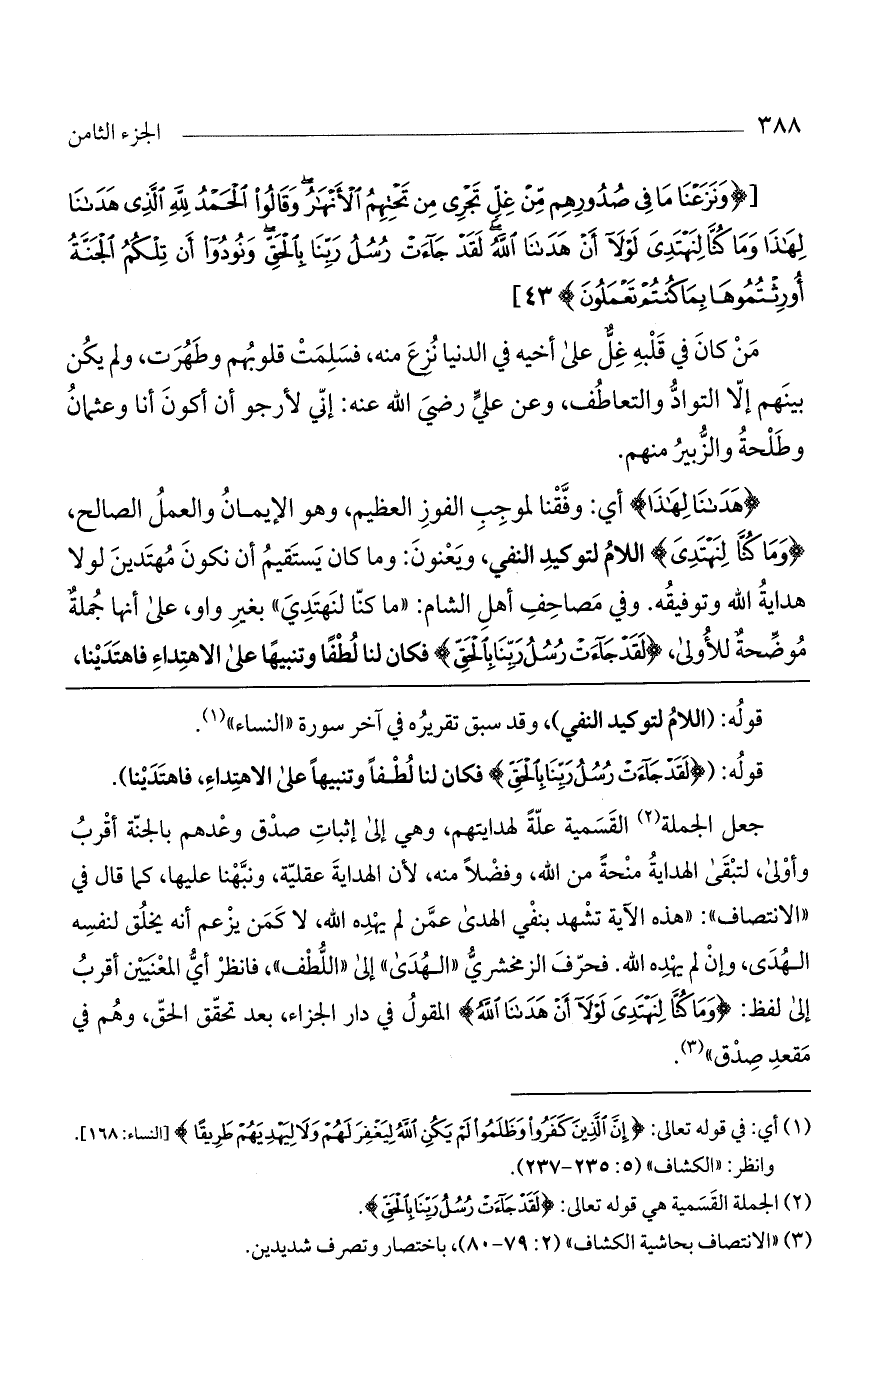 ٣٨٨ الجزء الثامن
[﴿وَنَزَعْنَا مَا فِى صُدُورِهِم مِّنْ غِلٍّ تَجْرِى مِن تَحْتِهِمُ ٱلْأَنْهَٰرُ ۖ وَقَالُوا۟ ٱلْحَمْدُ لِلَّهِ ٱلَّذِى هَدَىٰنَا
لِهَٰذَا وَمَا كُنَّا لِنَهْتَدِىَ لَوْلَآ أَنْ هَدَىٰنَا ٱللَّهُ ۖ لَقَدْ جَآءَتْ رُسُلُ رَبِّنَا بِٱلْحَقِّ ۖ وَنُودُوٓا۟ أَن تِلْكُمُ ٱلْجَنَّةُ
أُورِثْتُمُوهَا بِمَا كُنتُمْ تَعْمَلُونَ﴾ ٤٣]
مَنْ كانَ في قَلْبِهِ غِلٌّ علىٰ أخيه في الدنيا نُزِعَ منه، فسَلِمَتْ قلوبُهم وطَهُرَت، ولم يكُن
بينَهم إلّا التوادُّ والتعاطُف، وعن عليٍّ رضيَ الله عنه: إنّي لأرجو أن أكونَ أنا وعثمانُ
وطَلْحةُ والزُّبيرُ منهم.
﴿هَدَىٰنَا لِهَٰذَا﴾ أي: وفَّقْنا لموجِبِ الفوزِ العظيم، وهو الإيمـانُ والعملُ الصالح،
﴿وَمَا كُنَّا لِنَهْتَدِىَ﴾ اللامُ لتوكيدِ النفي، ويَعْنونَ: وما كان يَستَقيمُ أن نكونَ مُهتَدينَ لولا
هدايةُ الله وتوفيقُه. وفي مَصاحِفِ أهلِ الشام: «ما كنّا لنَهتَدِيَ» بغيرِ واو، علىٰ أنها جُملةٌ
مُوضِّحةٌ للأُولىٰ، ﴿لَقَدْ جَآءَتْ رُسُلُ رَبِّنَا بِٱلْحَقِّ﴾ فكان لنا لُطْفًا وتنبيهًا علىٰ الاهتِداءِ فاهتَدَيْنا،
قولُه: (اللامُ لتوكيد النفي)، وقد سبق تقريرُه في آخر سورة «النساء»(١).
قولُه: (﴿لَقَدْ جَآءَتْ رُسُلُ رَبِّنَا بِٱلْحَقِّ﴾ فكان لنا لُطْـفاً وتنبيهاً علىٰ الاهتِداءِ، فاهتَدَيْنا).
جعل الجملة(٢) القَسَمية علّةً لهدايتهم، وهي إلىٰ إثباتِ صدْق وعْدهم بالجنّة أقْربُ
وأوْلىٰ، لتبْقَىٰ الهدايةُ منْحةً من الله، وفضْلاً منه، لأن الهدايةَ عقليّة، ونبَّهْنا عليها، كما قال في
«الانتصاف»: «هذه الآية تشْهد بنفْي الهدىٰ عمَّن لم يهْدِه الله، لا كَمَن يزْعم أنه يخلُق لنفسِه
الـهُدَى، وإنْ لم يهْدِه الله. فحرّفَ الزمخشريُّ «الـهُدَىٰ» إلىٰ «اللُّطْف»، فانظرْ أيُّ المعْنَيَيْن أقربُ
إلىٰ لفظ: ﴿وَمَا كُنَّا لِنَهْتَدِىَ لَوْلَآ أَنْ هَدَىٰنَا ٱللَّهُ﴾ المقولُ في دار الجزاء، بعد تحقّق الحقّ، وهُم في
مَقعدِ صِدْق»(٣).
(١) أي: في قوله تعالى: ﴿إِنَّ ٱلَّذِينَ كَفَرُوا۟ وَظَلَمُوا۟ لَمْ يَكُنِ ٱللَّهُ لِيَغْفِرَ لَهُمْ وَلَا لِيَهْدِيَهُمْ طَرِيقًا﴾ [النساء: ١٦٨].
وانظر: «الكشاف» (٥: ٢٣٥-٢٣٧).
(٢) الجملة القَسَمية هي قوله تعالى: ﴿لَقَدْ جَآءَتْ رُسُلُ رَبِّنَا بِٱلْحَقِّ﴾.
(٣) «الانتصاف بحاشية الكشاف» (٢: ٧٩-٨٠)، باختصار وتصرف شديدين.